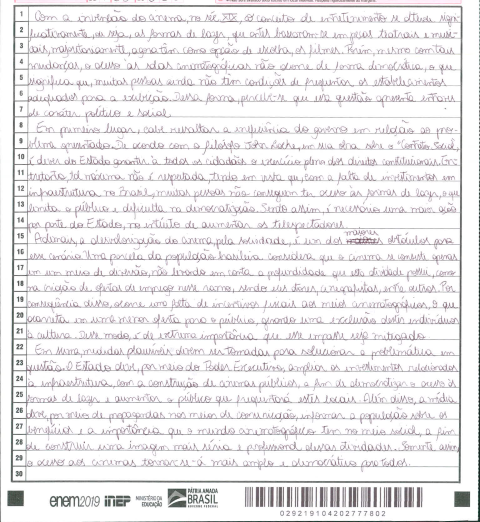 1 Com a invenção do cinema, no séc XIX, o conceito de entretenimento se alterou signi-
2 ficativamente, ou seja, as formas de lazer, que antes baseavam-se em peças teatrais e musi-
3 cais, majoritariamente, agora têm como opção de escolha, os filmes. Porém, mesmo com tais
4 mudanças, o acesso às salas cinematográficas não ocorre de forma democrática, o que
5 significa que, muitas pessoas ainda não têm condições de frequentar os estabelecimentos
6 adequados para a exibição. Dessa forma, percebe-se que essa questão apresenta entraves
7 de caráter político e social.
8 Em primeiro lugar, cabe ressaltar a influência do governo em relação ao pro-
9 blema apresentado. De acordo com o filósofo John Locke, em sua obra sobre o "Contrato Social,
10 é dever do Estado garantir a todos os cidadãos o exercício pleno dos direitos constitucionais. En-
11 tretanto, tal máxima não é respeitada, tendo em vista que, com a falta de investimentos em
12 infraestrutura no Brasil, muitas pessoas não conseguem ter acesso às formas de lazer, o que
13 limita o público e dificulta na democratização. Sendo assim, é necessário uma maior ação
14 por parte do Estado, no intuito de aumentar os telespectadores.
15 Ademais, a desvalorização do cinema, pela sociedade, é um dos maiores obstáculos para
16 esse cenário. Uma parcela da população brasileira considera que o cinema se consiste apenas
17 em um meio de diversão, não levando em conta a profundidade que essa atividade possui, como
18 na criação de ofertas de emprego nesse ramo, sendo eles atores, cinegrafistas, entre outros. Por
19 consequência disso, ocorre uma falta de incentivos fiscais aos meios cinematográficos, o que
20 acarreta em uma menor oferta para o público, gerando uma exclusão destes indivíduos
21 à cultura. Desse modo, é de extrema importância que esse impasse seja mitigado.
22 Em suma, medidas plausíveis devem ser tomadas para solucionar a problemática em
23 questão. O Estado deve, por meio do Poder Executivo, ampliar os investimentos relacionados
24 à infraestrutura, com a construção de cinemas públicos, a fim de democratizar o acesso às
25 formas de lazer e aumentar o público que frequentará estes locais. Além disso, a mídia
26 deve, por meio de propagandas nos meios de comunicação, informar a população sobre os
27 benefícios e a importância que o mundo cinematográfico tem no meio social, a fim
28 de construir uma imagem mais séria e profissional dessas atividades. Somente assim,
29 o acesso aos cinemas tornar-se-á mais amplo e democrático para todos.
30
enem2019 inep MINISTÉRIO DA EDUCAÇÃO PÁTRIA AMADA BRASIL GOVERNO FEDERAL
029219104202777802